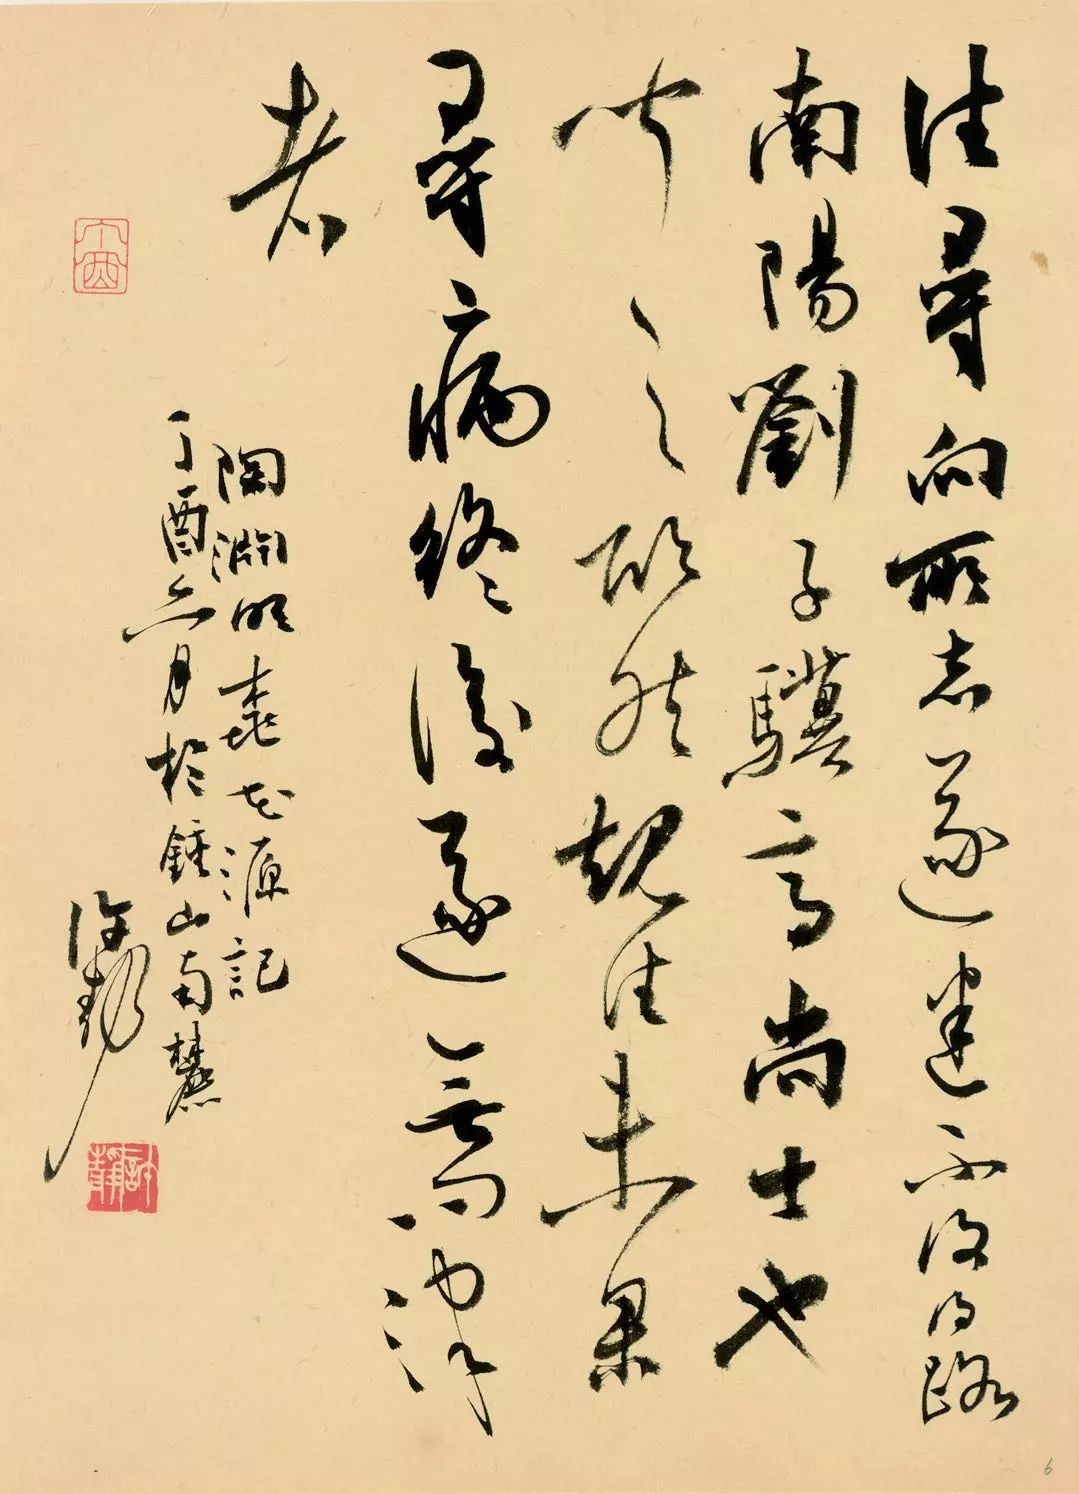 往尋向所志遂迷不復得路
南陽劉子驥高尚士也
聞之欣然規往未果
尋病終後遂無問津
者
陶淵明桃花源記
丁酉六月於鍾山南麓
許靜
許靜